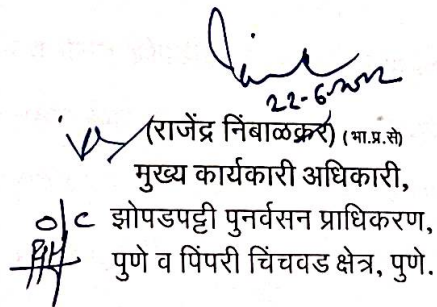 22-6-2022
(राजेंद्र निंबाळकर) (भा.प्र.से)
मुख्य कार्यकारी अधिकारी,
o/c झोपडपट्टी पुनर्वसन प्राधिकरण,
पुणे व पिंपरी चिंचवड क्षेत्र, पुणे.